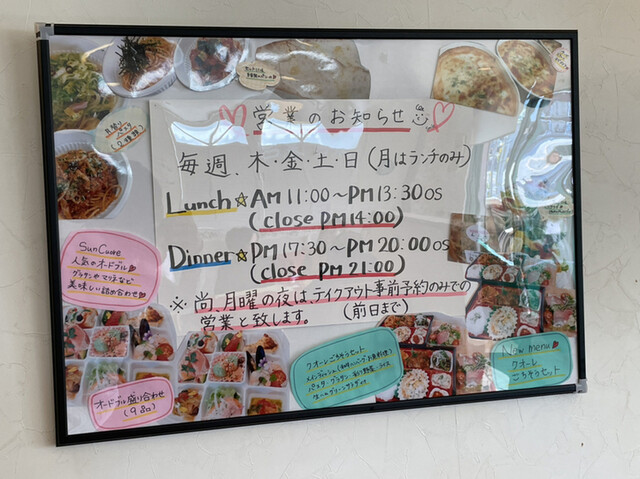 営業のお知らせ
毎週、木・金・土・日(月はランチのみ)
Lunch☆AM 11:00〜PM 13:30 OS
(close PM 14:00)
Dinner☆PM 17:30〜PM 20:00 OS
(close PM 21:00)
※尚、月曜の夜は、テイクアウト事前予約のみでの
営業と致します。(前日まで)
SunCuore
人気のオードブル
グラタンやマリネなど
美味しい詰め合わせ
オードブル盛り合わせ
クオーレごろうセット
パスタ・グラタン
New menu
クオーレ
ごろうセット